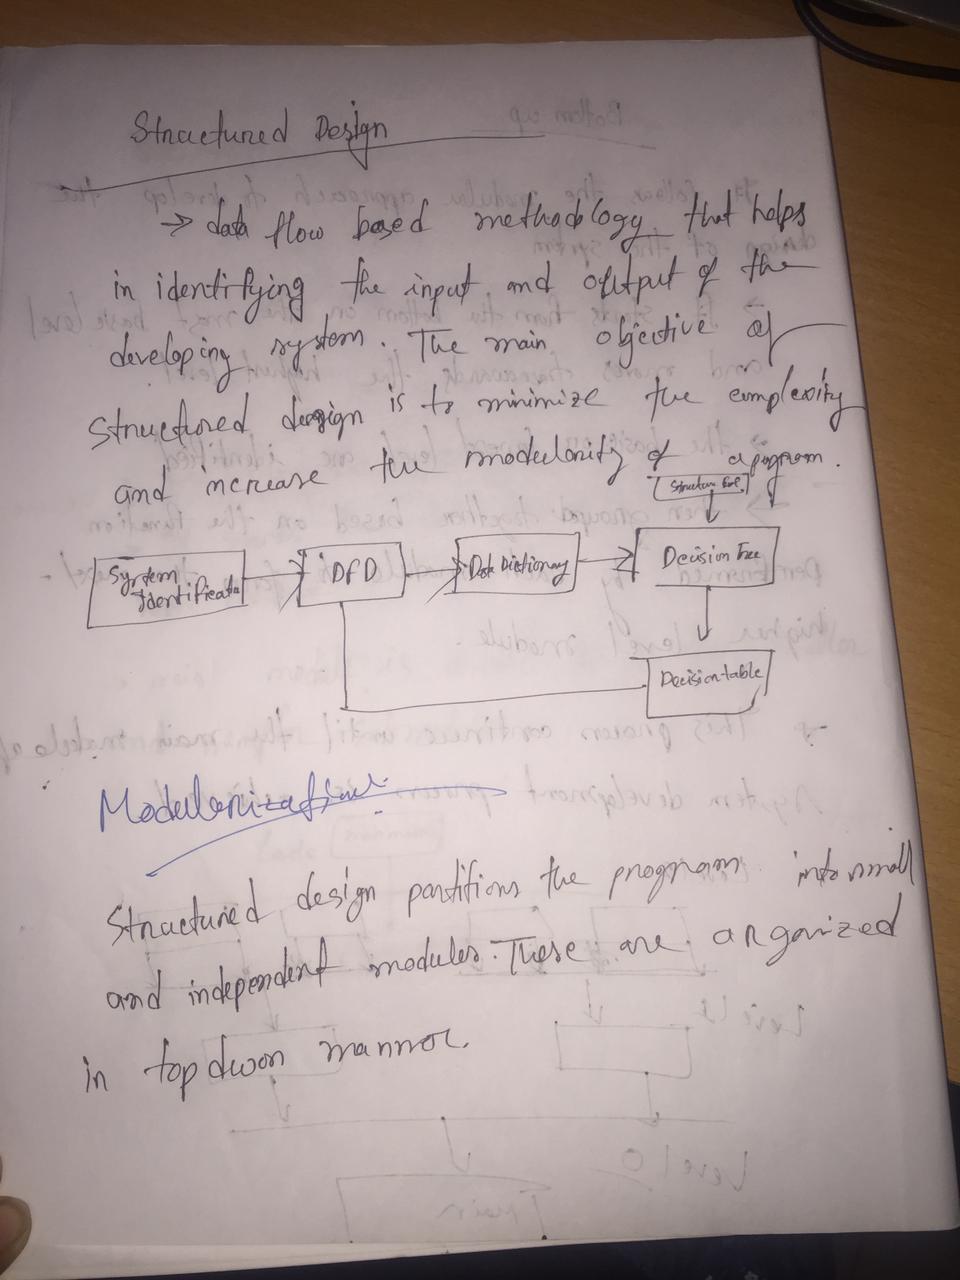 Structured Design
→ data flow based methodology that helps
in identifying the input and output of the
developing system. The main objective of
structured design is to minimize the complexity
and increase the modularity of a program.
System Identificatio
DFD
Data Dictionary
Decision Tree
Decision table
Modularization
Structured design partitions the program into small
and independent modules. These are organized
in top dwon manner.